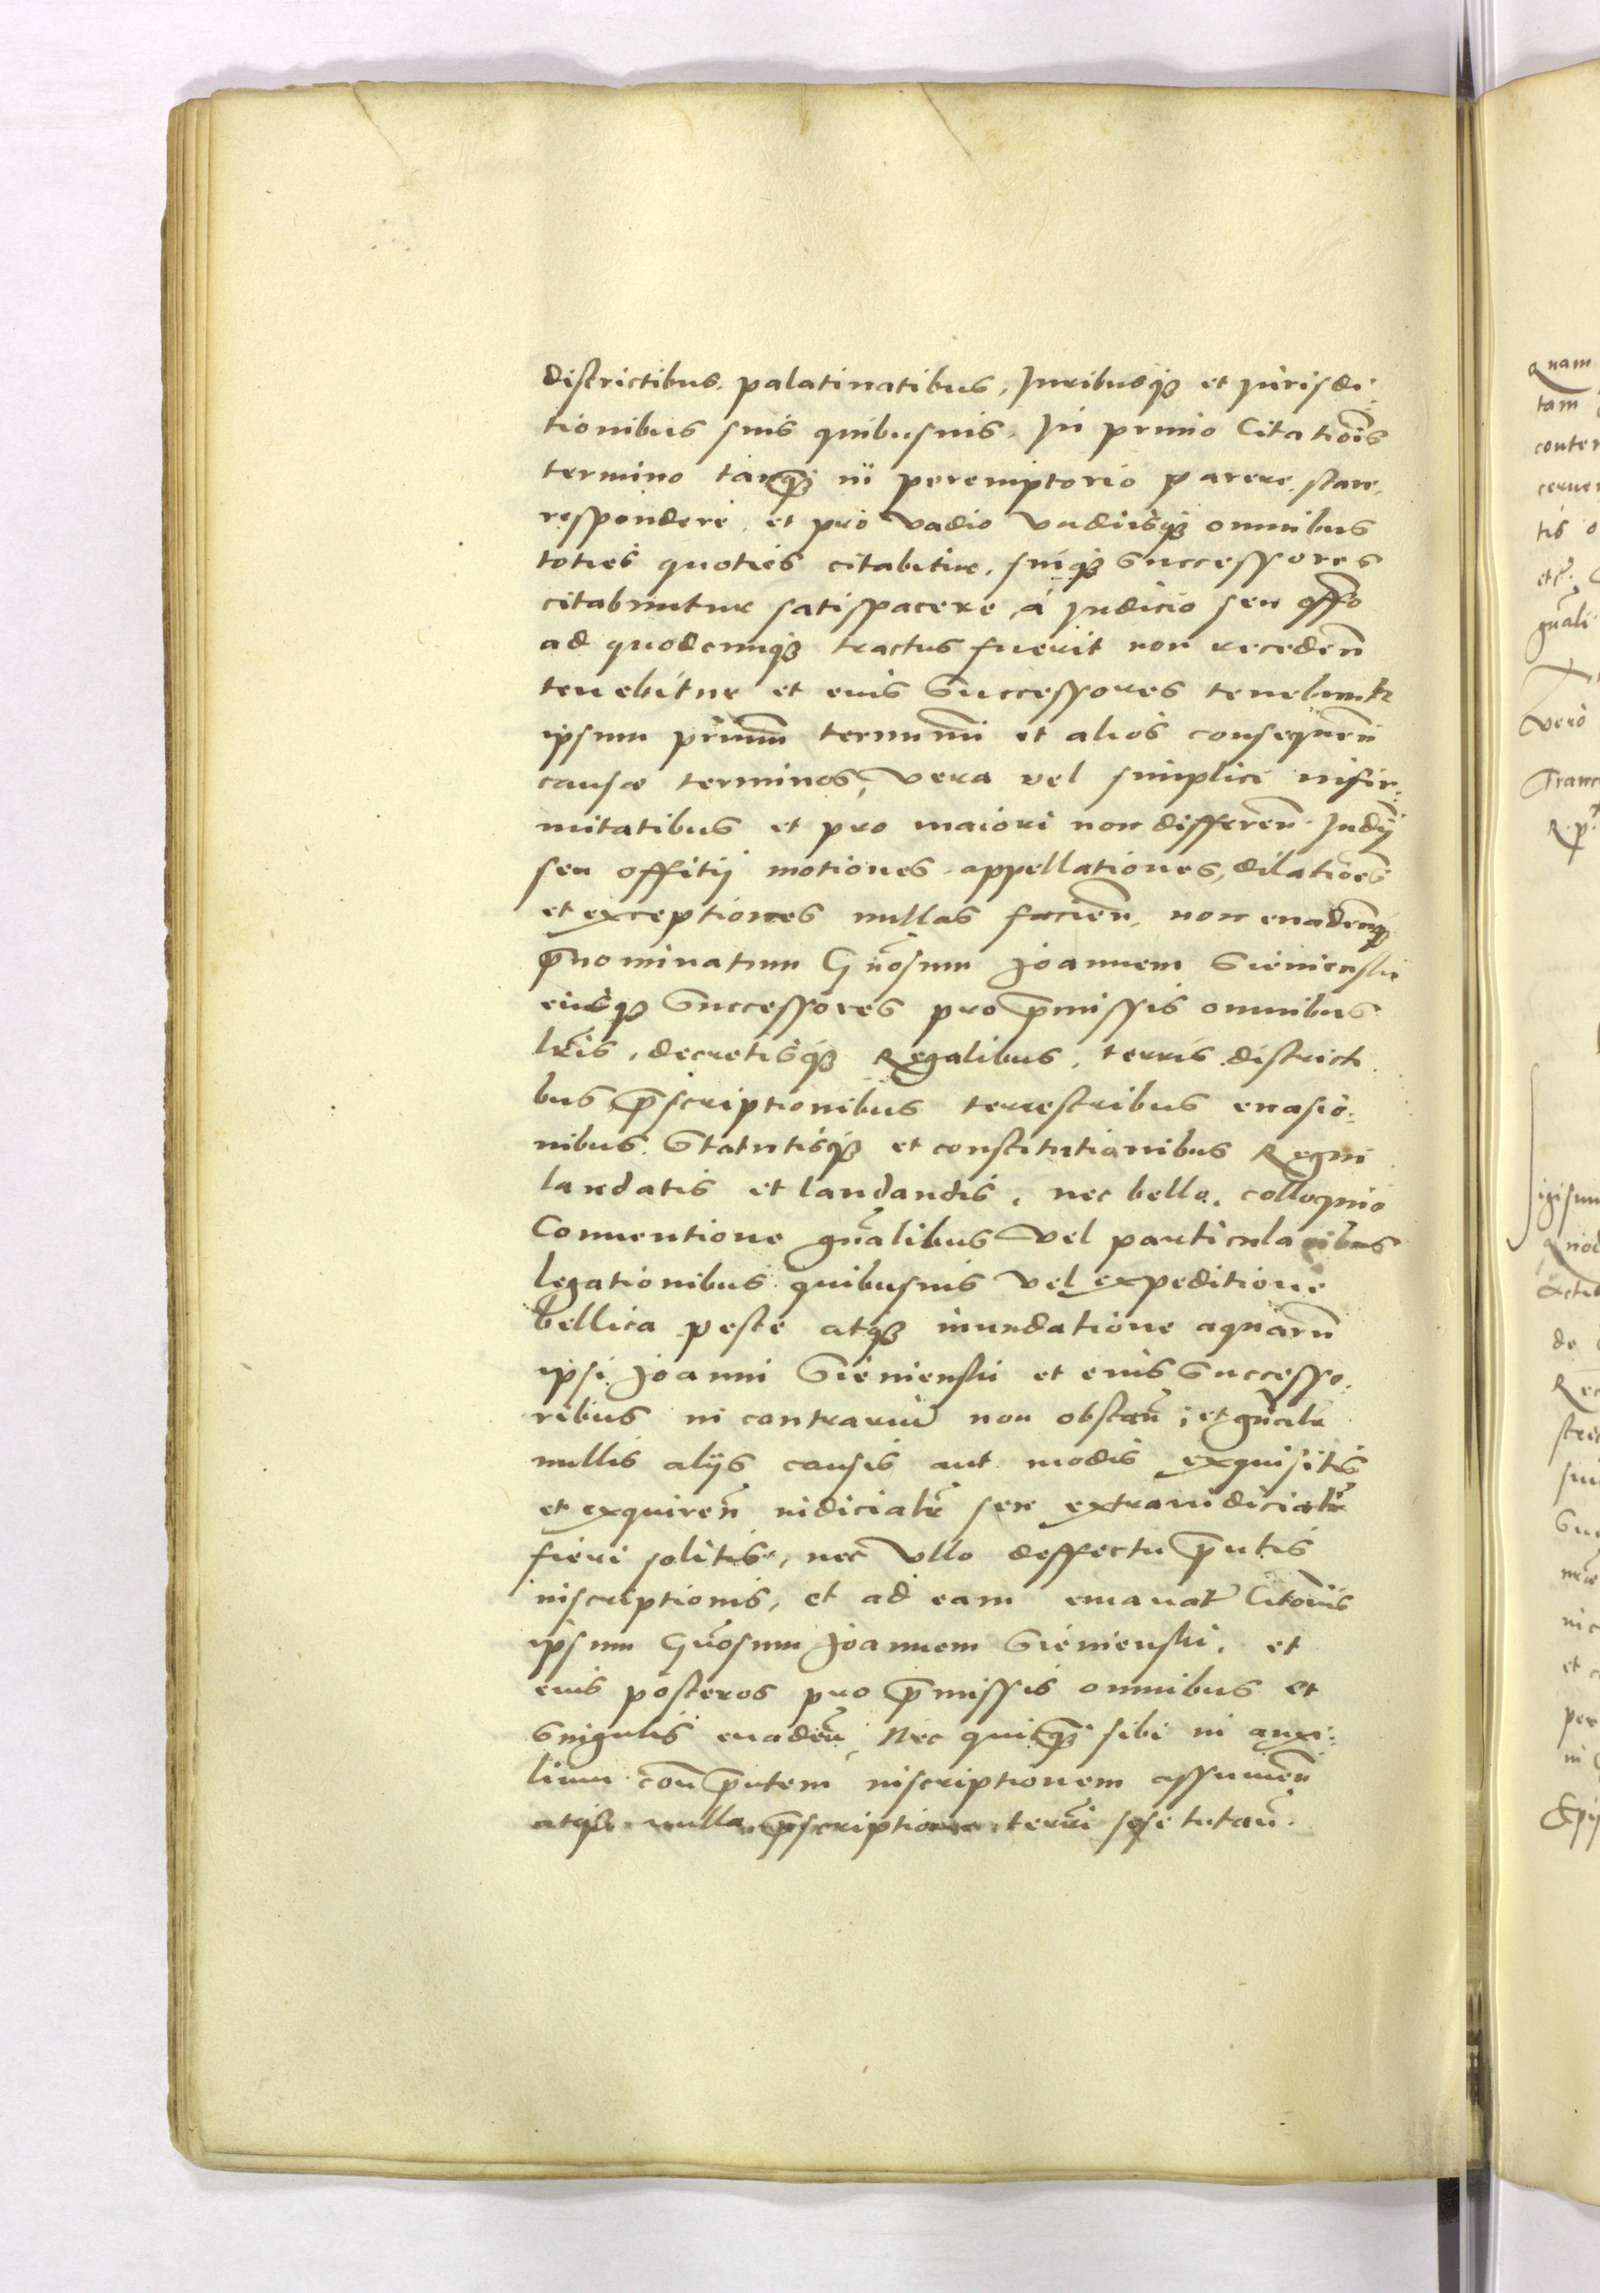 districtibus, palatinatibus, Juribusq₃ et jurisdi:
tionibus suis quibusuis, In primo Citatiõis
termino tanq̃ in peremptorio parere, stare,
respondere, et pro vadio vadiisq₃ omnibus
toties quoties citabitur, suiq₃ Successores
citabuntur satisfacere, á judicio seu offo
ad quodcunq₃ tractus fuerit non recedeñ
tenebitur et eius Successores tenebuntr
ipsum primũ terminũ et alios consequeñ
causæ terminos, vera vel simplici infir:
mitatibus et pro maiori non differeñ. Judÿ
seu offitij motiones appellationes, dilatioẽs
et exceptiones nullas facieñ, non euadeñq₃
p̃nominatum Gñosum Joannem Sienienski
eiusq₃ Successores pro p̃missis omnibus
lr̃is, decretisq₃ Regalibus, terris districti
bus p̃scriptionibus terrestribus euasio:
nibus Statutisq₃ et constitutionibus Regni
laudatis et laudandis, nec bello, colloquio
Conuentione gñalibus vel particularibus
legationibus quibusuis vel expeditione
bellica peste atq₃ inundatione aquarũ
ipsi Joanni Sienienski et eius Successo,
ribus in contrariũ non obstañ, et gñalr̃
nullis alijs causis aut modis exquisitis
et exquireñ iudicialr̃ seu extraiudicialr̃
fieri solitis, nec vllo deffectu p̃ntis
inscriptionis, et ad eam emanat̃ Citõnis
ipsum Gñosum Joannem Sienienski, et
eius posteros pro p̃missis omnibus et
Singulis euadeñ, Nec quicq̃ sibi in auxi:
lium coñ p̃ntem inscriptionem assumeñ
atq₃ nulla p̃scriptione terrr̃i sese tutañ.
Quam
tam
conter
tis o
etc̃.
gñali
vero
Franc
de
et
per
in